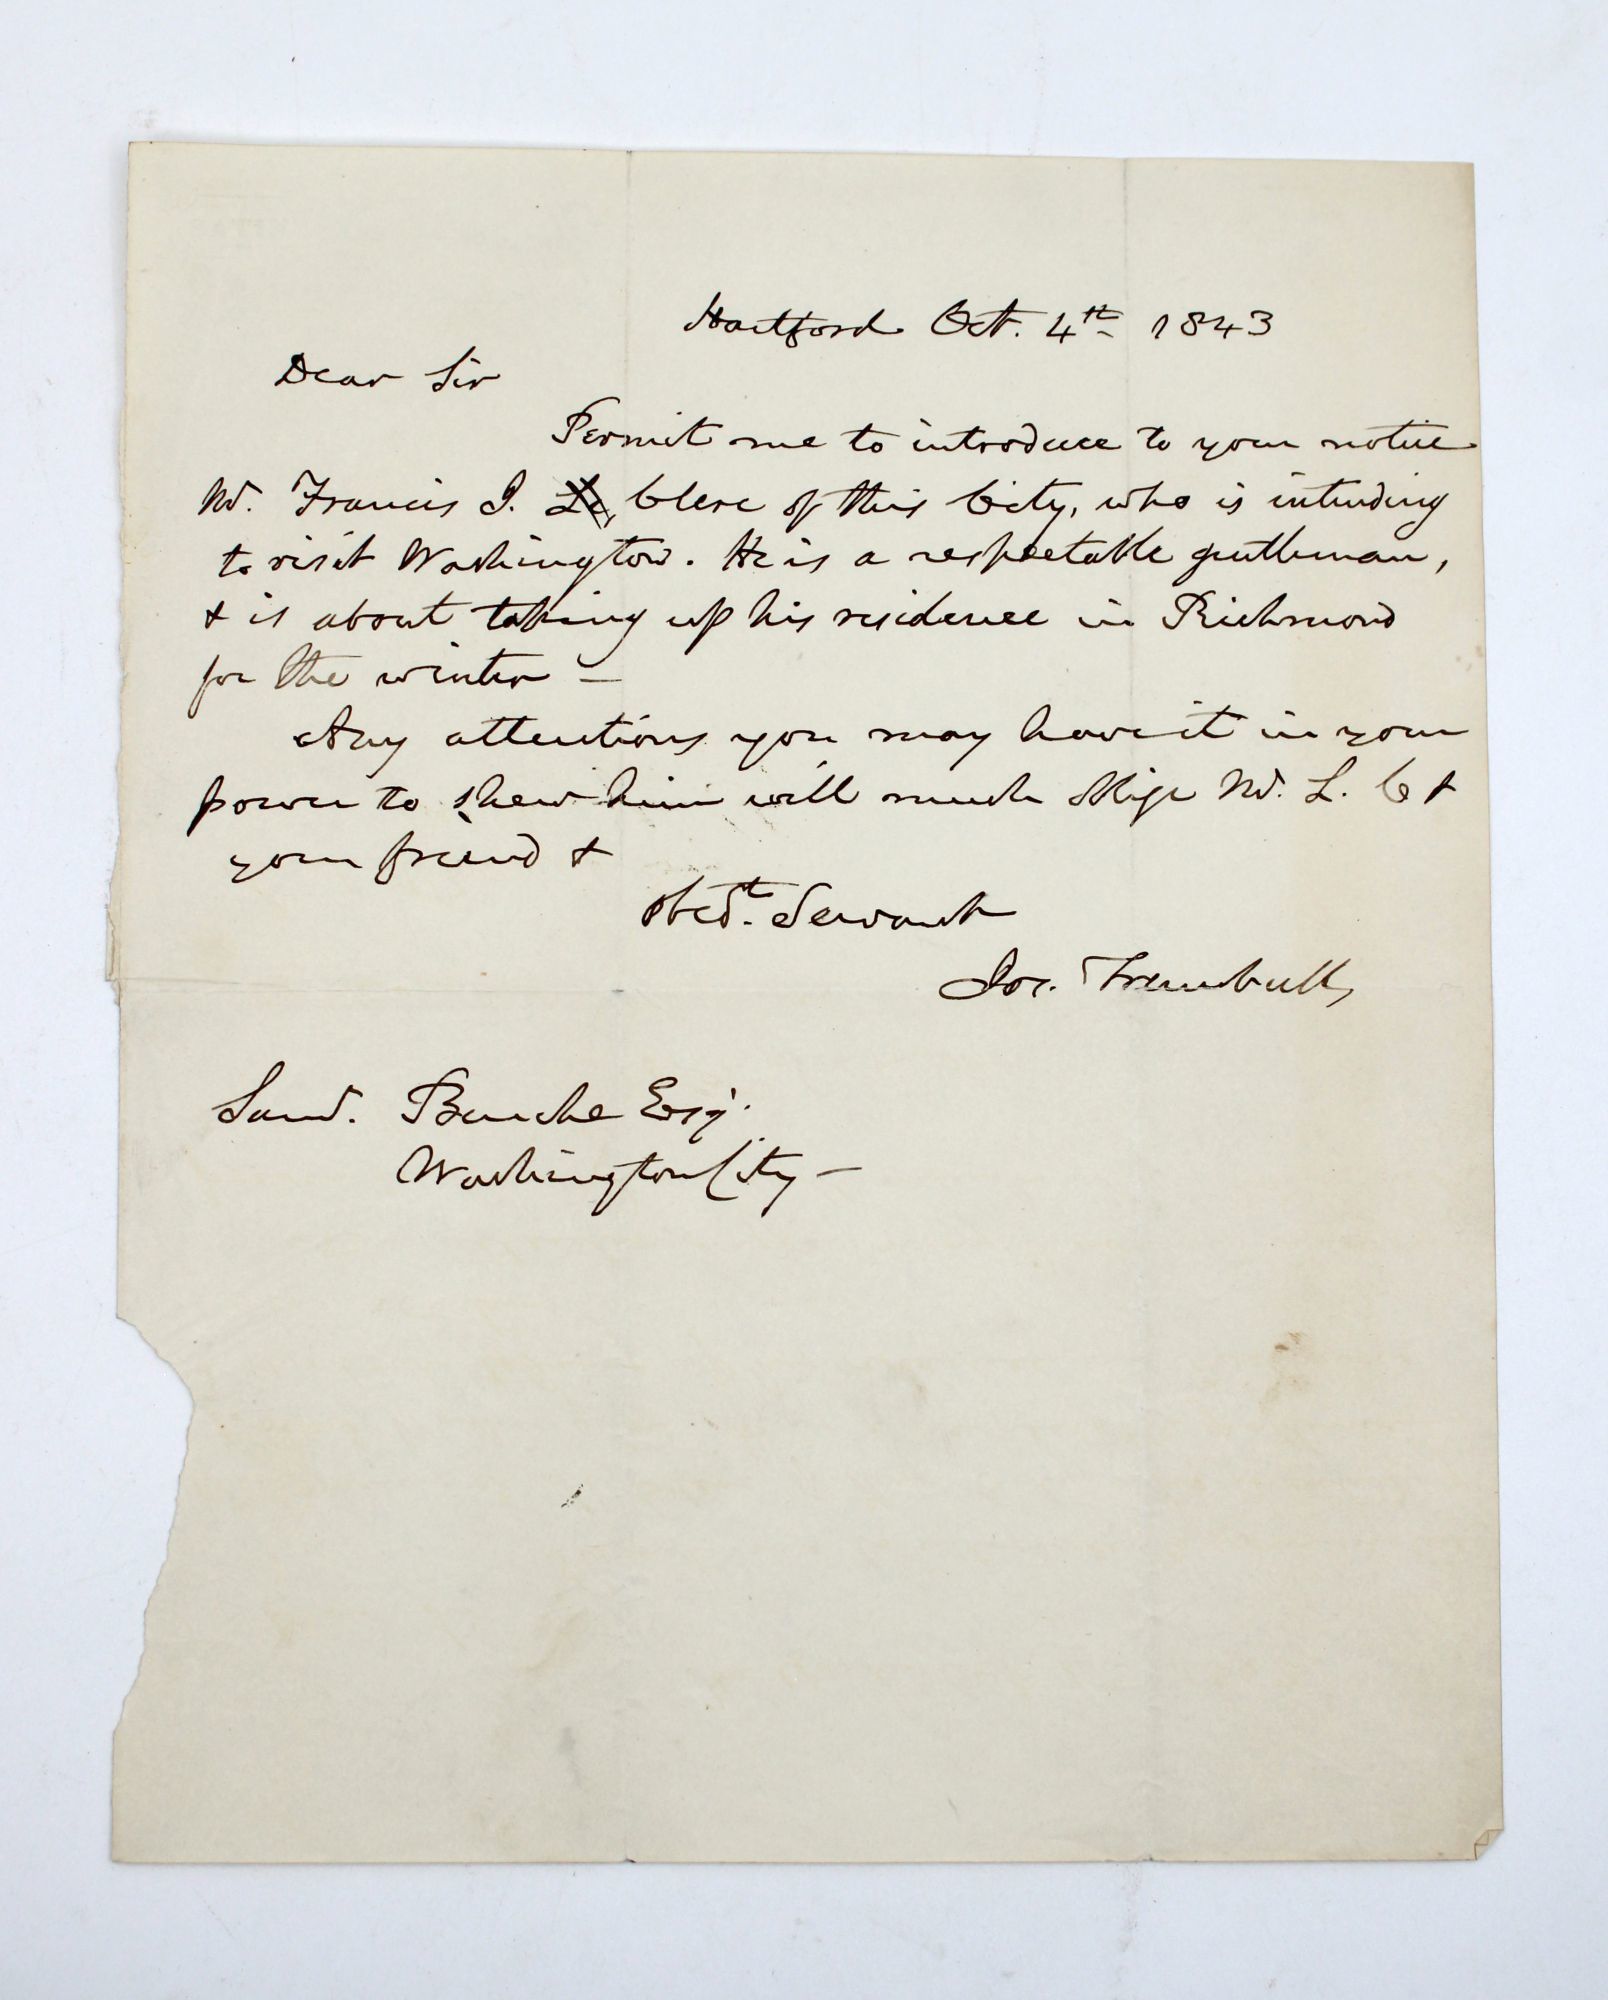 Hartford Oct. 4th 1843
Dear Sir
Permit me to introduce to your notice
Mr. Francis J. Le Clerc of this City, who is intending
to visit Washington. He is a respectable gentleman,
& is about taking up his residence in Richmond
for the winter –
Any attentions you may have it in your
power to shew him will much oblige Mr. L. C &
your friend &
obedt. Servant
Jos. Trumbull
Saml. Burche Esq.
Washington City –